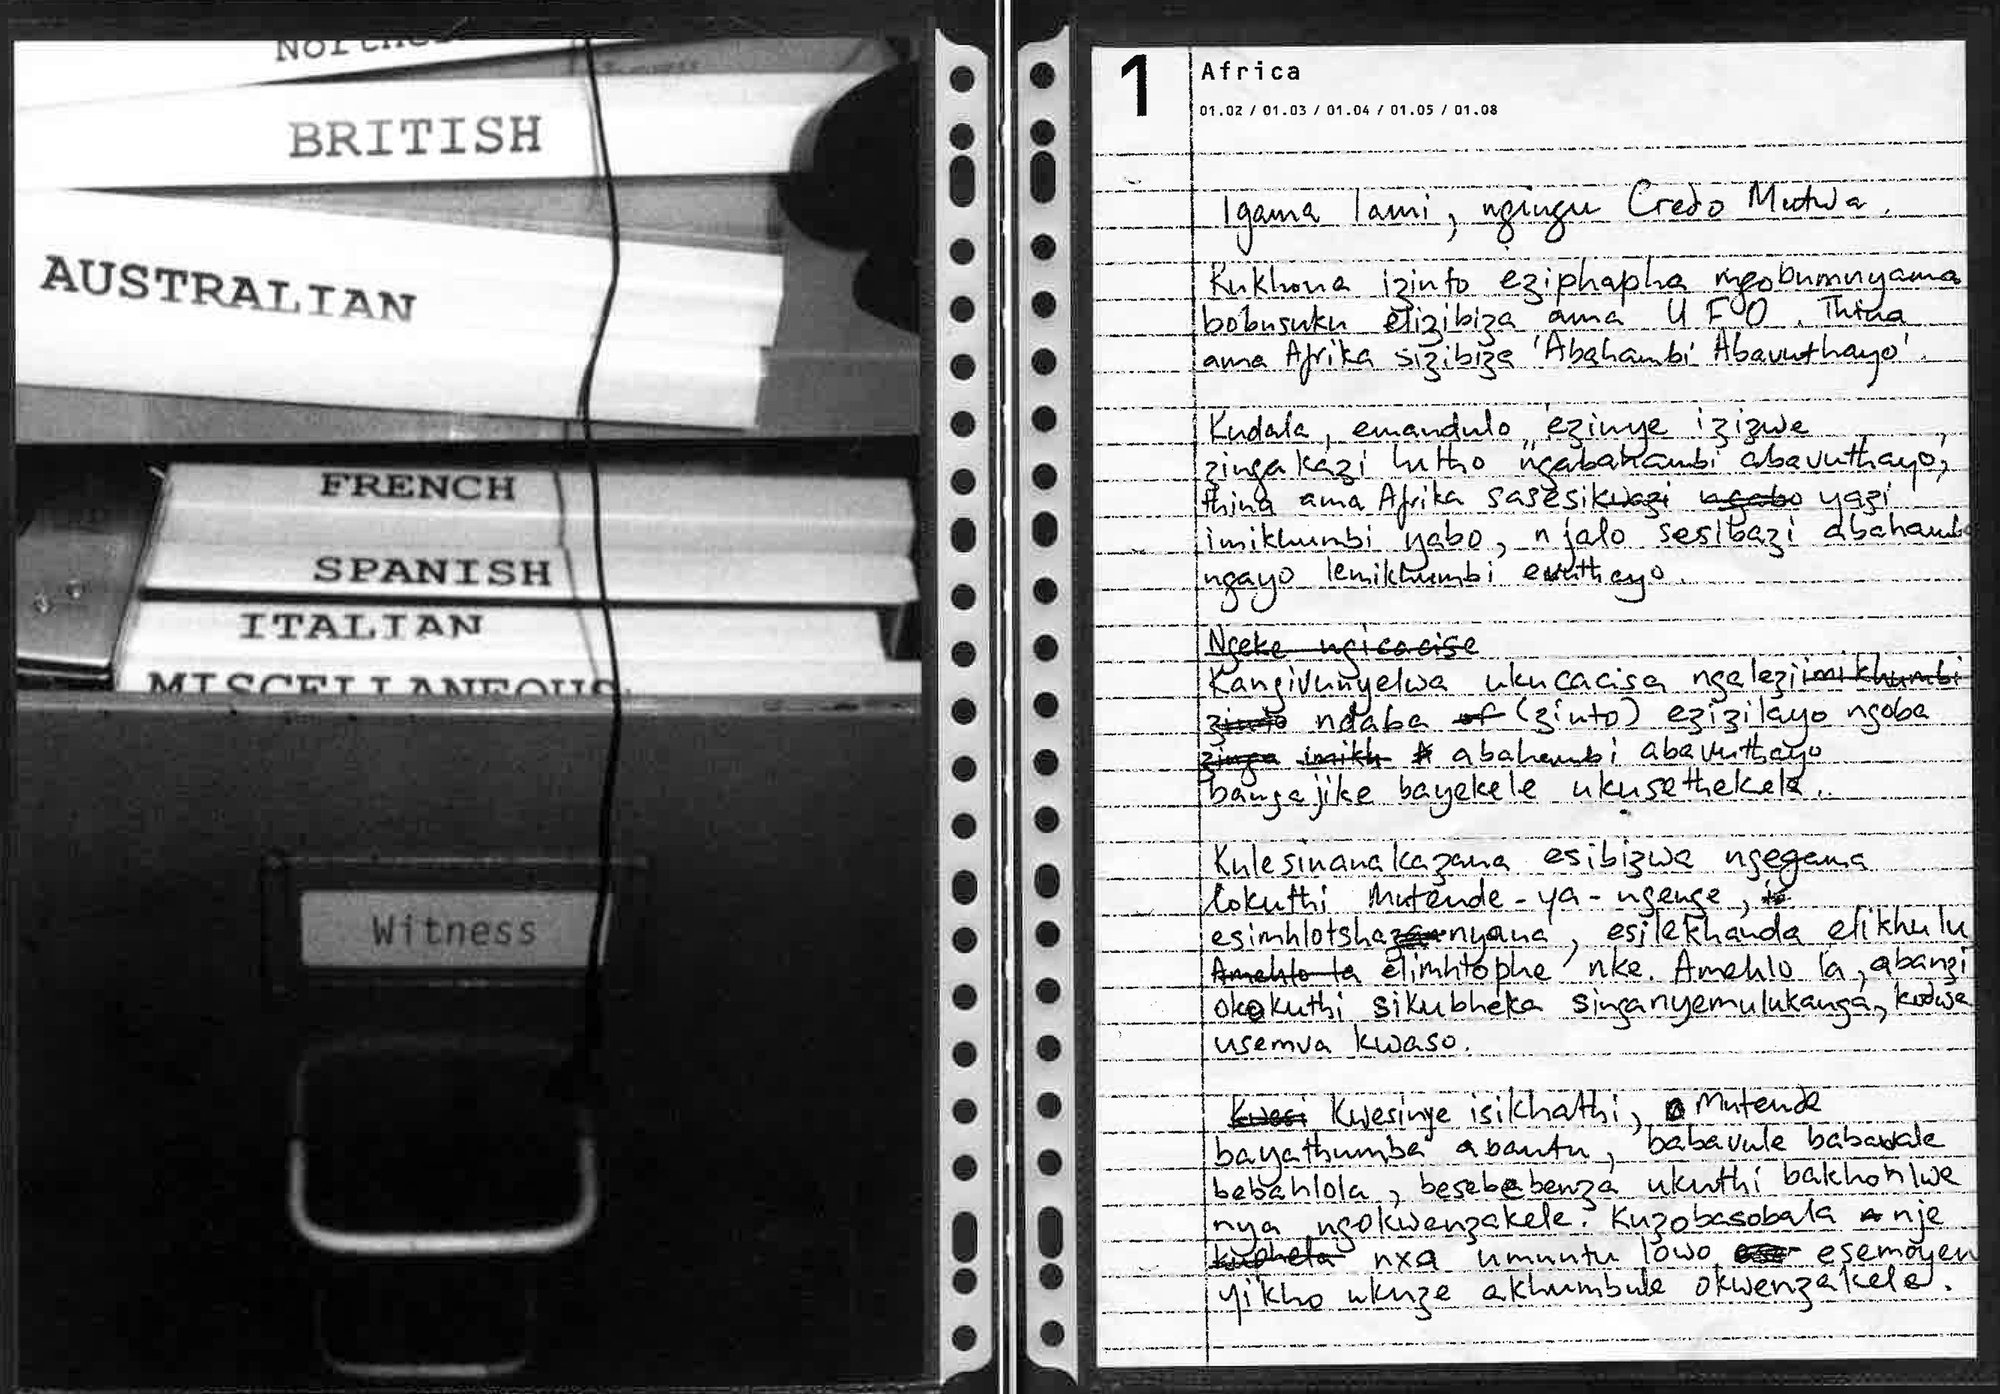 BRITISH
AUSTRALIAN
FRENCH
SPANISH
ITALIAN
MISCELLANEOUS
Witness
1 Africa
01.02 / 01.03 / 01.04 / 01.05 / 01.08
Igama lami, ngingu Credo Mutwa.
Kukhona izinto eziphapha ngobumnyama
bobusuku elizibiza ama UFO. Thina
ama Afrika sizibiza 'Abahambi Abavuthayo'.
Kudala, emandulo ezinye izizwe
zingakazi lutho "ngabahambi abavuthayo,"
thina ama Afrika sasesikwazi ngabo yazi
imikhumbi yabo, njalo sesibazi abahamba
ngayo lemikhumbi evuthayo.
Ngeke ngicacise
Kangivunyelwa ukucacisa ngalezi imikhumbi
zinto ndaba of (zinto) ezizilayo ngoba
zinga imikh abahambi abavuthayo
bangajike bayekele ukusethekela.
Kulesinanakazana esibizwa ngegama
lokuthi Mutende-ya-ngenge,
esimhlotshazanyana, esilekhanda elikhulu
Amehlo la elimhlophe nke. Amehlo la, abanzi
okokuthi sikubheka singanyemulukanga, kodwa
usemva kwaso.
Kwesi Kwesinye isikhathi, Mutende
bayathumba abantu, babavule babavale
bebahlola, besebebenza ukuthi bakhohlwe
nya ngokwenzakele. Kuzobasobala nje
kuphela nxa umuntu lowo esemoyen
yikho ukuze akhumbule okwenzakele.